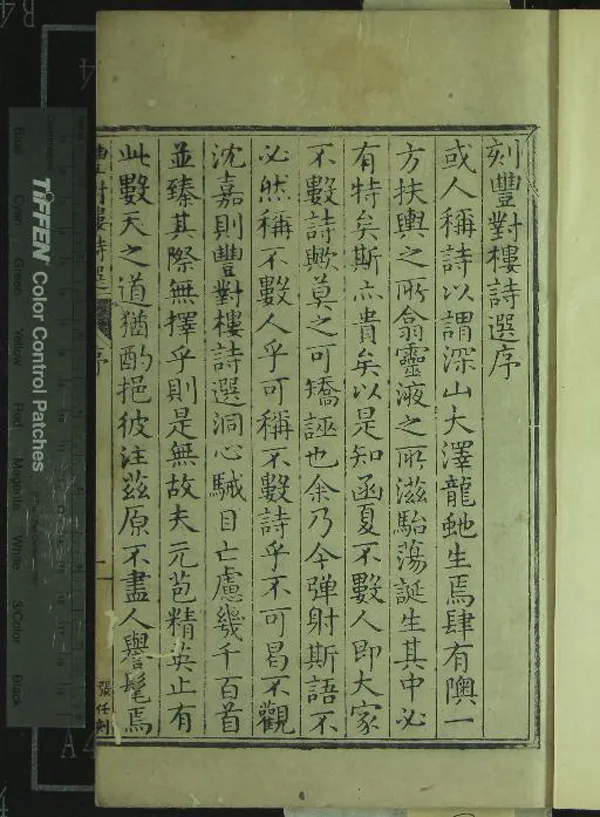 刻豐對樓詩選序
或人稱詩以謂深山大澤龍虵生焉肆有隩一
方扶輿之所翕靈液之所滋駘蕩誕生其中必
有特矣斯亦貴矣以是知函夏不數人即大家
不數詩歟莫之可矯誣也余乃今弹射斯語不
必然稱不數人乎可稱不數詩乎不可曷不觀
沈嘉則豐對樓詩選洞心駴目亡慮幾千百首
並臻其際無擇乎則是無故夫元苞精英止有
此數天之道猶酌挹彼注兹原不盡人譽髦焉
豐對樓詩選
序
一
張任刻
TIFFEN Color Control Patches
Blue
Cyan
Green
Yellow
Red
Magenta
White
3/Color
Black